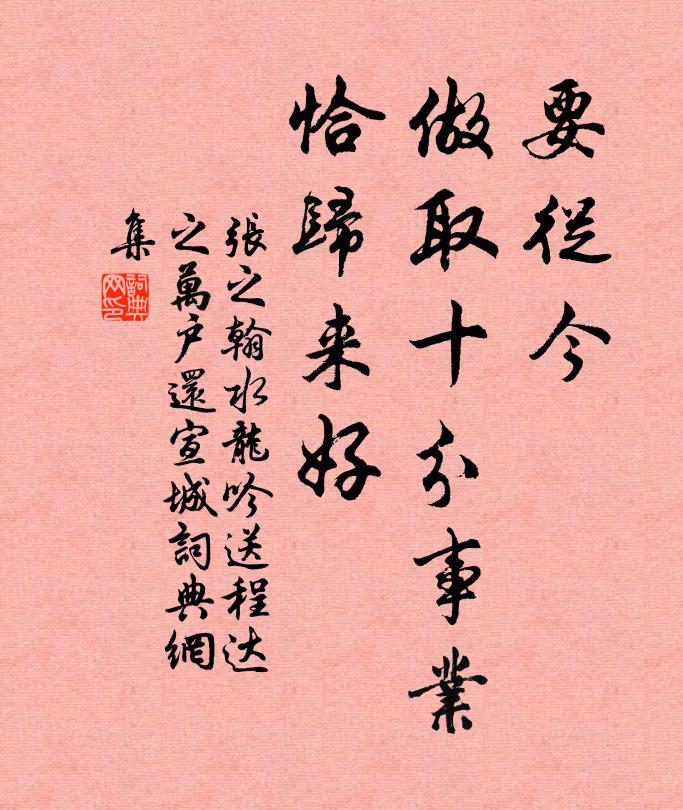 要從今
做取十分事業
恰歸来好
張之翰水龍吟送程达
之萬户還宣城詞典網
集
詞典
网印